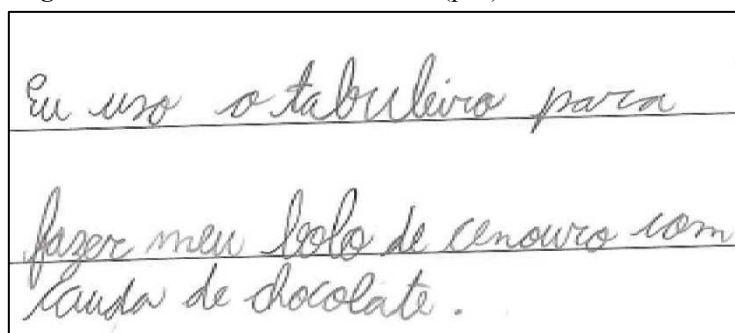 Eu uso o tabuleiro para
fazer meu bolo de cenouro com
cauda de chocolate.